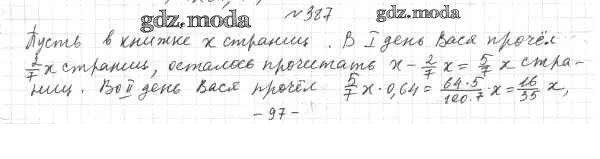 №387
gdz.moda gdz.moda
Пусть в книжке x страниц. В I день Вася прочёл
2/7 x страниц, осталось прочитать x - 2/7 x = 5/7 x стра-
ниц. Во II день Вася прочёл 5/7 x · 0,64 = 64·5/100·7 · x = 16/35 x,
- 97 -